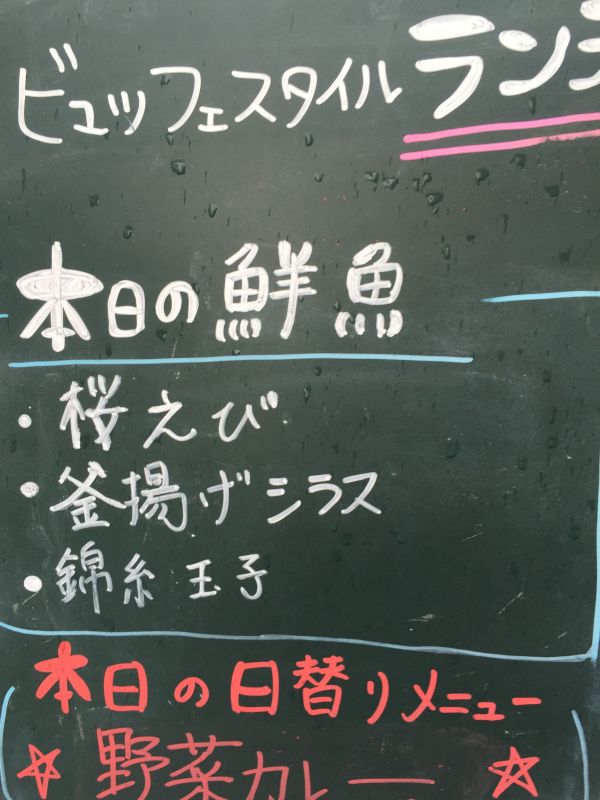 ビュッフェスタイル ラン
本日の鮮魚
・桜えび
・釜揚げシラス
・錦糸玉子
本日の日替りメニュー
☆野菜カレー☆